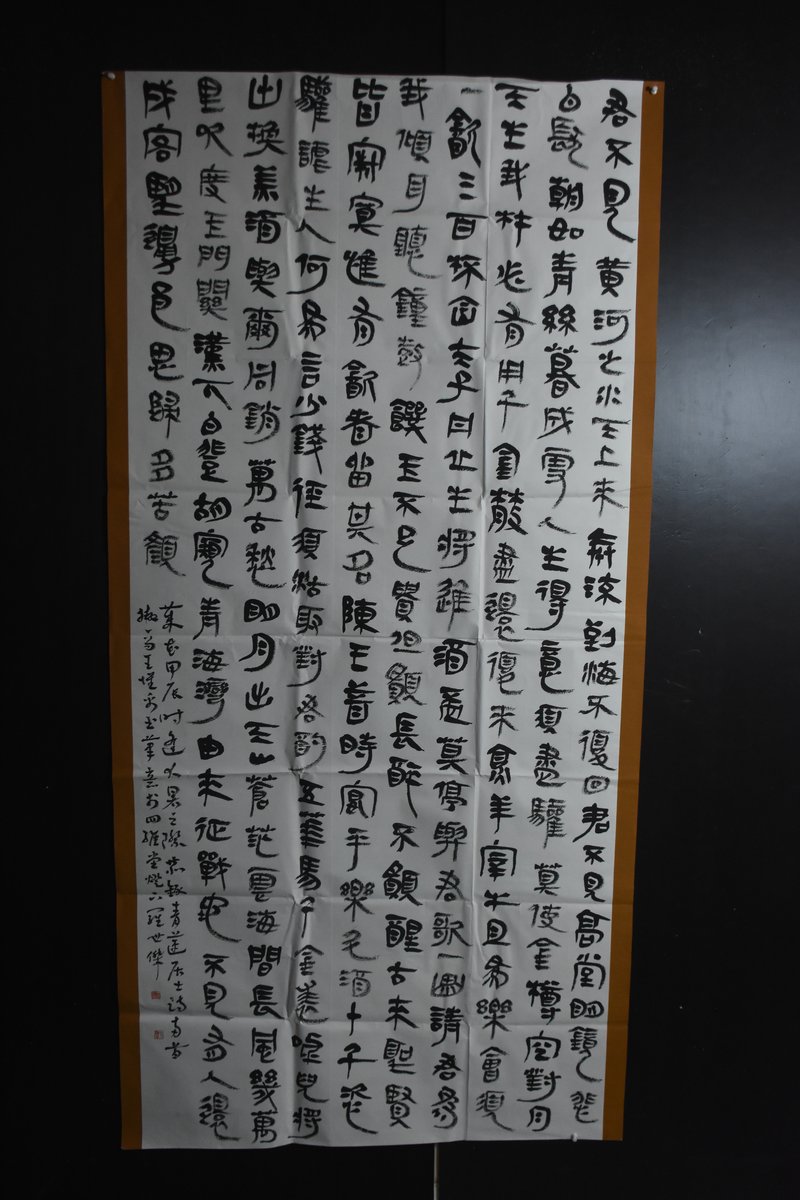 君不見黃河之水天上来奔流到海不復回君不見高堂明鏡悲
白髮朝如青絲暮成雪人生得意須盡驩莫使金樽空對月
天生我材必有用千金散盡還復来烹羊宰牛且為樂會須
一飲三百杯岑夫子丹丘生將進酒盃莫停與君歌一曲請君為
我傾耳聽鐘鼓饌玉不足貴但願長醉不願醒古来聖賢
皆寂寞惟有飲者留其名陳王昔時宴平樂斗酒十千恣
驩謔主人何為言少錢徑須沽取對君酌五華馬千金裘呼兒將
出換美酒與爾同銷萬古愁明月出天山蒼茫雲海間長風幾萬
里吹度玉門關漢下白登胡窺青海灣由来征戰地不見有人還
戍客望邊邑思歸多苦顏
甲辰時逢大暑之際恭録青蓮居士詩兩首
筆意於四維堂燈下羅世傑